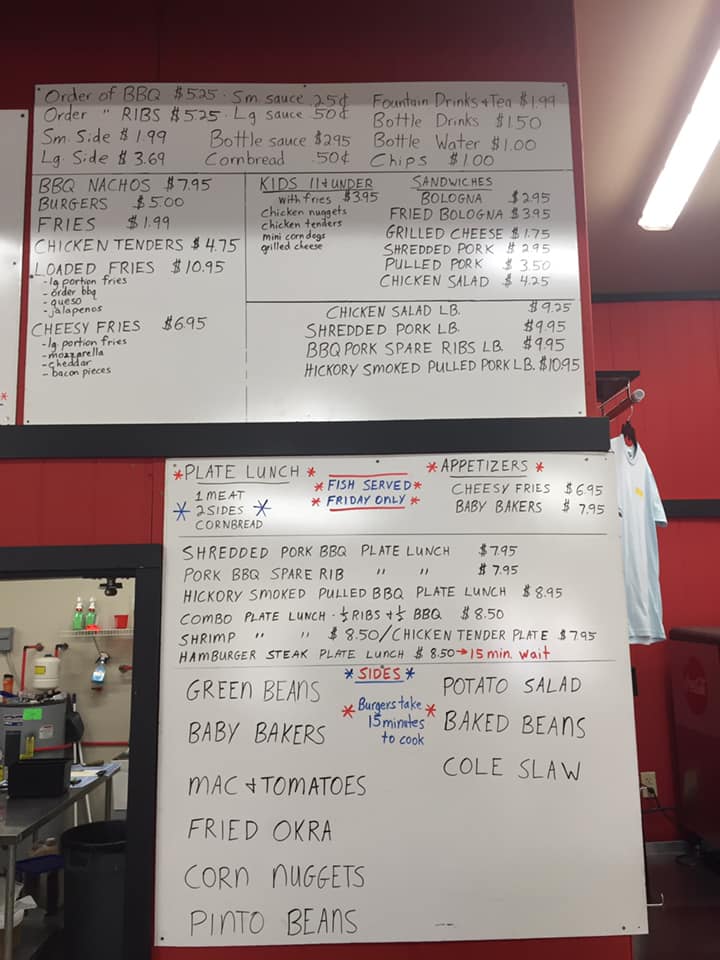 Order of BBQ $5.25 · Sm. sauce .25¢
Order " RIBS $5.25 · Lg sauce .50¢
Sm. Side $1.99
Bottle sauce $2.95
Lg. Side $3.69
Cornbread .50¢
Fountain Drinks & Tea $1.99
Bottle Drinks $1.50
Bottle Water $1.00
Chips $1.00
BBQ NACHOS $7.95
BURGERS $5.00
FRIES $1.99
CHICKEN TENDERS $4.75
LOADED FRIES $10.95
- lg portion fries
- order bbq
- queso
- jalapenos
CHEESY FRIES $6.95
- lg. portion fries
- mozzarella
- cheddar
- bacon pieces
KIDS 11 & UNDER
with fries $3.95
chicken nuggets
chicken tenders
mini corn dogs
grilled cheese
SANDWICHES
BOLOGNA $2.95
FRIED BOLOGNA $3.95
GRILLED CHEESE $1.75
SHREDDED PORK $2.95
PULLED PORK $3.50
CHICKEN SALAD $4.25
CHICKEN SALAD LB. $9.25
SHREDDED PORK LB. $9.95
BBQ PORK SPARE RIBS LB. $9.95
HICKORY SMOKED PULLED PORK LB. $10.95
*PLATE LUNCH*
1 MEAT
* 2 SIDES *
CORNBREAD
* FISH SERVED *
* FRIDAY ONLY *
* APPETIZERS *
CHEESY FRIES $6.95
BABY BAKERS $7.95
SHREDDED PORK BBQ PLATE LUNCH $7.95
PORK BBQ SPARE RIB " " $7.95
HICKORY SMOKED PULLED BBQ PLATE LUNCH $8.95
COMBO PLATE LUNCH - ½ RIBS & ½ BBQ $8.50
SHRIMP " " $8.50/CHICKEN TENDER PLATE $7.95
HAMBURGER STEAK PLATE LUNCH $8.50→15 min. wait
* SIDES *
* Burgers take *
15 minutes
to cook
GREEN BEANS
BABY BAKERS
MAC & TOMATOES
FRIED OKRA
CORN NUGGETS
PINTO BEANS
POTATO SALAD
BAKED BEANS
COLE SLAW